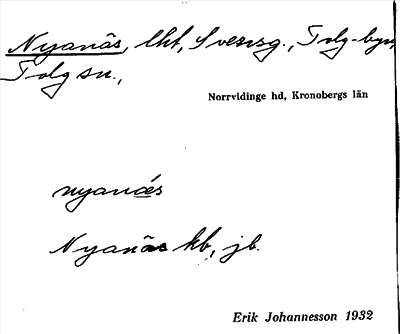 Nyanäs, lht, Sversg., Tolg-byn,
Tolg sn.,
Norrvidinge hd, Kronobergs län
nyanǽs
Nyanäs kb, jb.
Erik Johannesson 1932